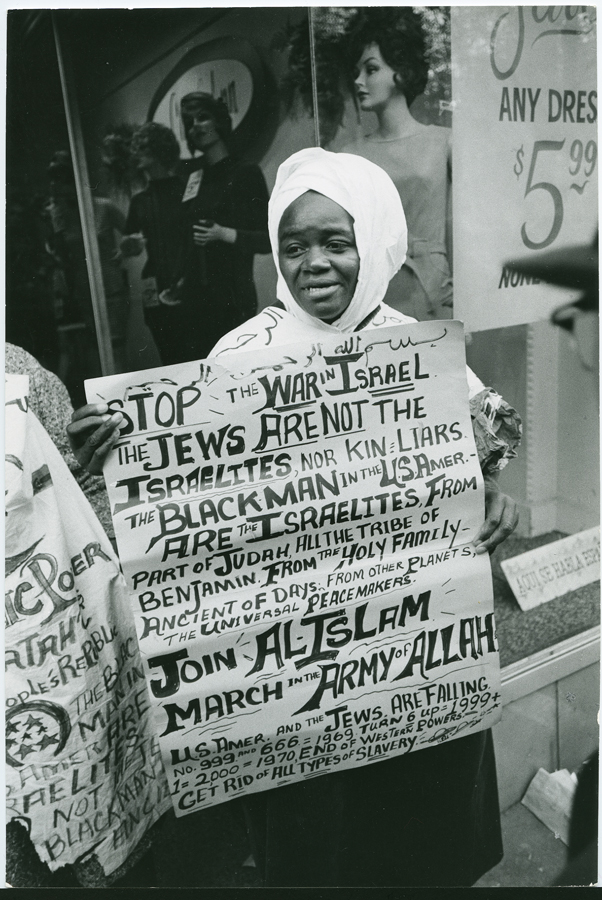 ANY DRES
$5.99
STOP THE WAR IN ISRAEL
THE JEWS ARE NOT THE
ISRAELITES, NOR KIN=LIARS.
THE BLACKMAN IN THE U.S. AMER.-
ARE THE ISRAELITES, FROM
PART OF JUDAH, ALL THE TRIBE OF
BENJAMIN. FROM THE HOLY FAMILY-
ANCIENT OF DAYS. FROM OTHER PLANETS,
THE UNIVERSAL PEACEMAKERS.
JOIN AL-ISLAM
MARCH IN THE ARMY OF ALLAH
U.S. AMER. AND THE JEWS ARE FALLING.
NO. 999 AND 666 = 1969, TURN 6 UP = 1999+
1 = 2,000 = 1970, END OF WESTERN POWERS.
GET RID OF ALL TYPES OF SLAVERY.
AQUI SE HABLA ESP
IC POER
ATAH
OPLE'S REPUBLIC
THE BLAC
MAN IN
AMER ARE
RAELITES
NOT
BLACKMAN
ANCI